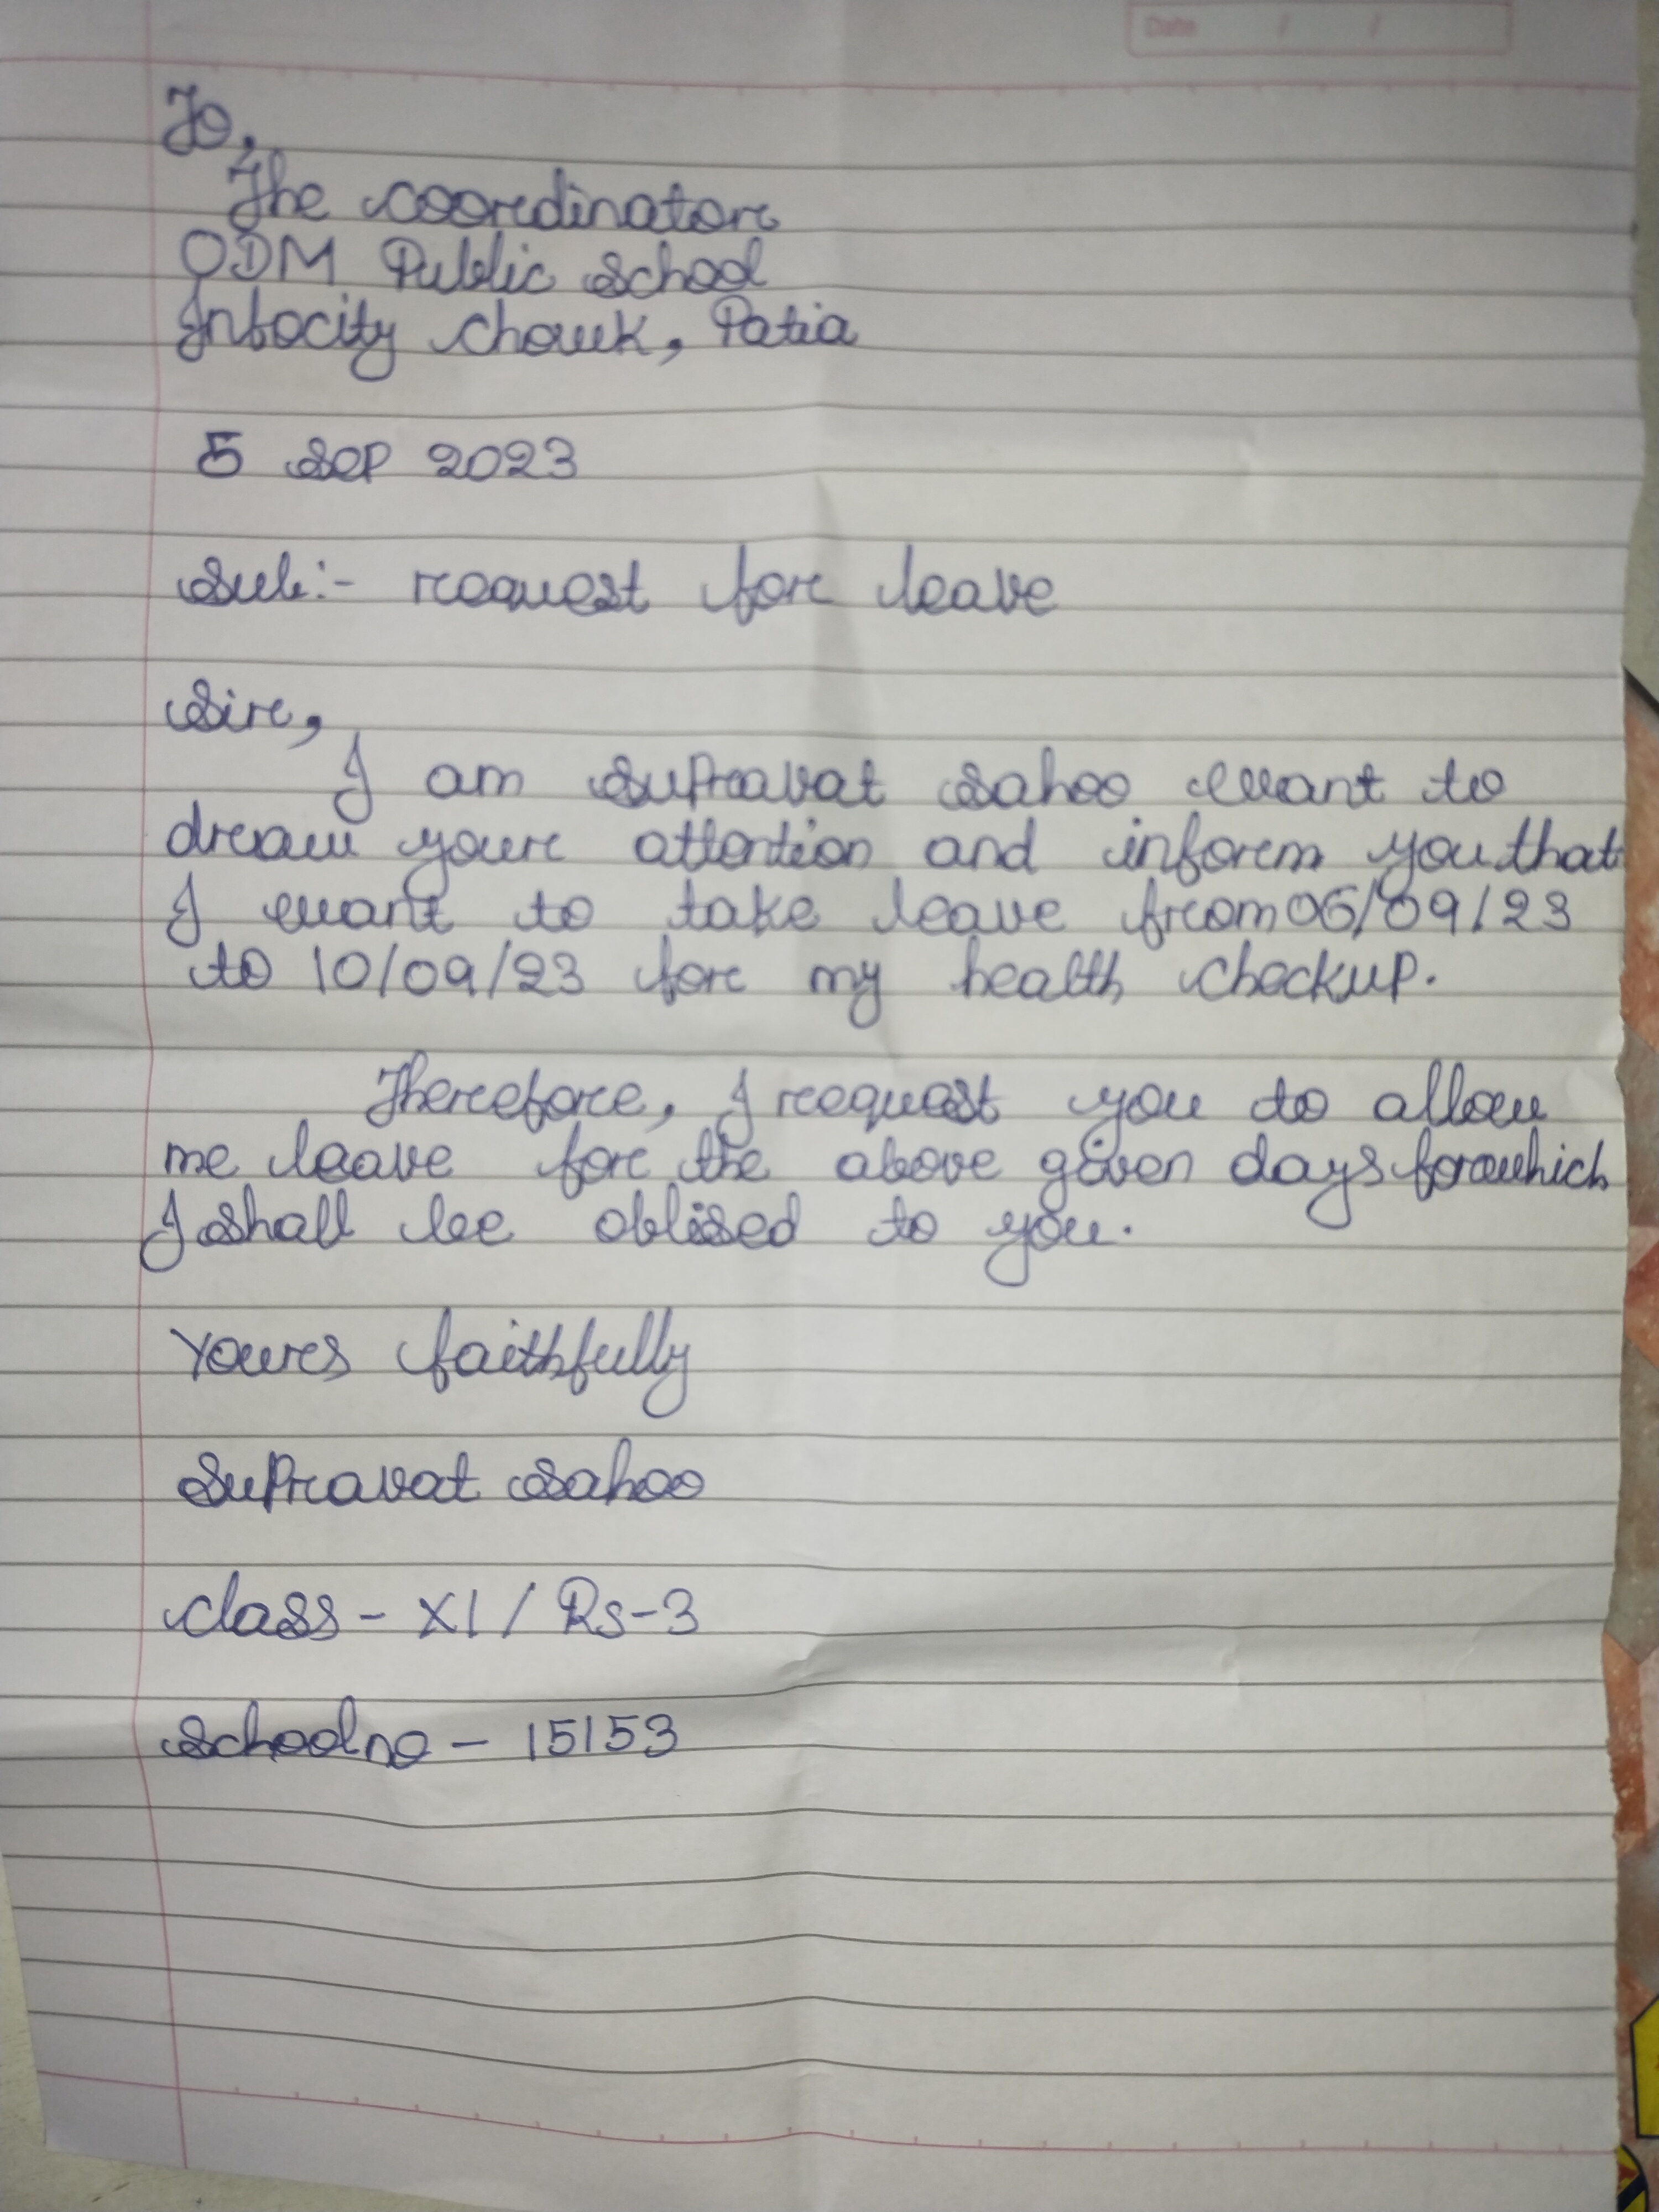 Date / /
To,
The coordinator
ODM Public School
Infocity chowk, Patia
5 Sep 2023
Sub:- request for leave
Sir,
I am Supravat Sahoo want to
draw your attention and inform you that
I want to take leave from 06/09/23
to 10/09/23 for my health checkup.
Therefore, I request you to allow
me leave for the above given days for which
I shall be oblised to you.
Yours faithfully
Supravat Sahoo
Class - XI / RS-3
School no - 15153